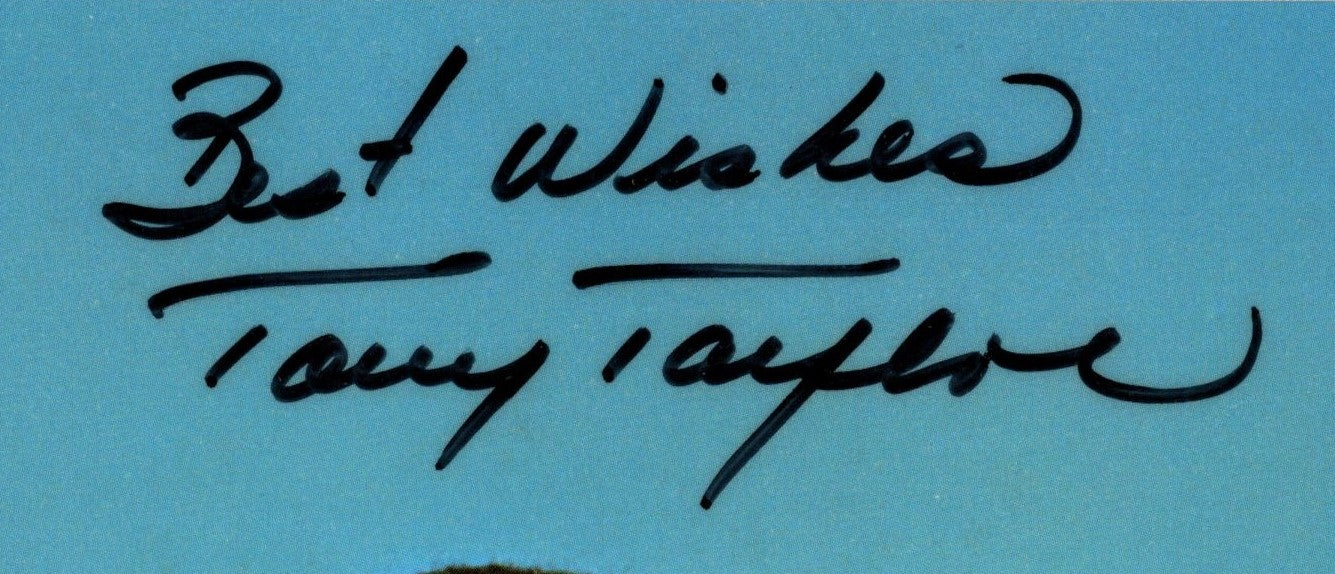 Best Wishes
Tony Taylor